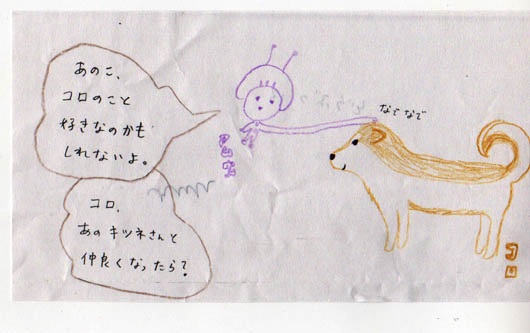 あのこ、
コロのこと
好きなのかも
しれないよ。
コロ、
あのキツネさんと
仲良くなったら?
なでなで
コロ